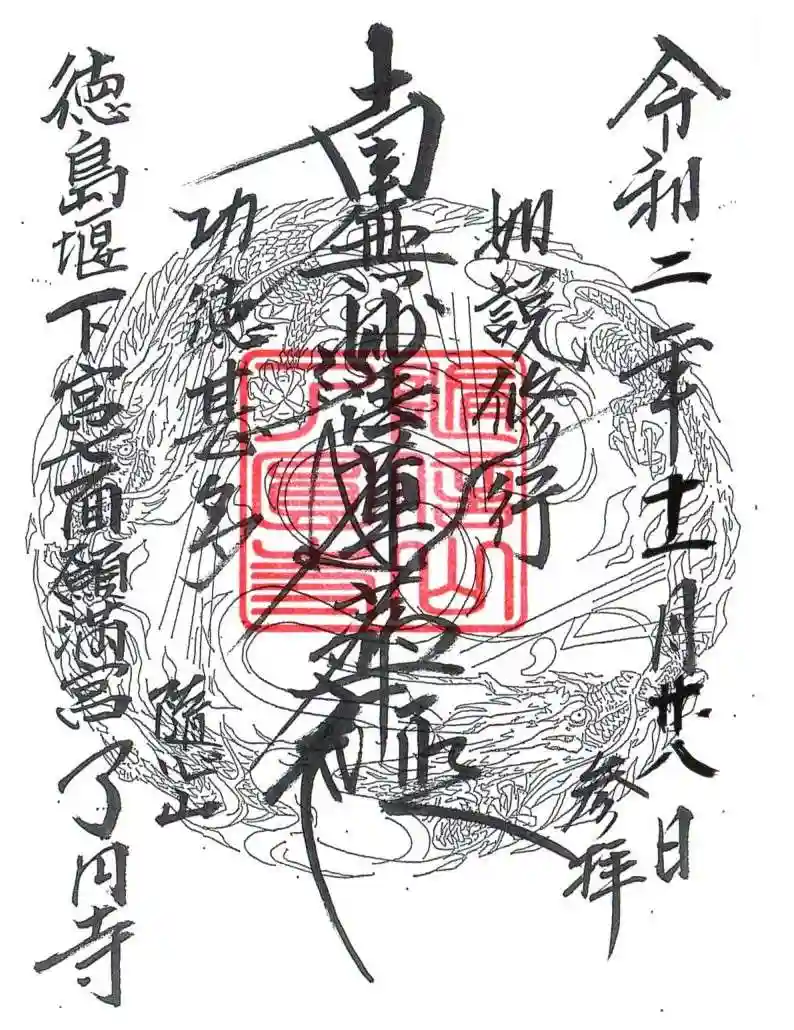 令和二年十一月廿八日
参拝
如説修行
南無妙法蓮華経
功徳甚多
徳島堰下宮七面願満宮 了円寺